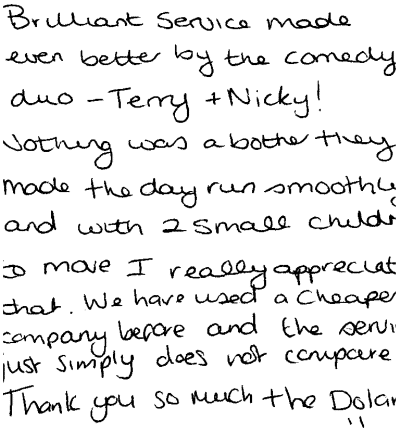 Brilliant Service made
even better by the comedy
duo - Terry + Nicky!
Nothing was a bother they
made the day run smoothly
and with 2 small childr
to move I really appreciat
that. We have used a Cheaper
company before and the servi
just simply does not compare
Thank you so much the Dolar